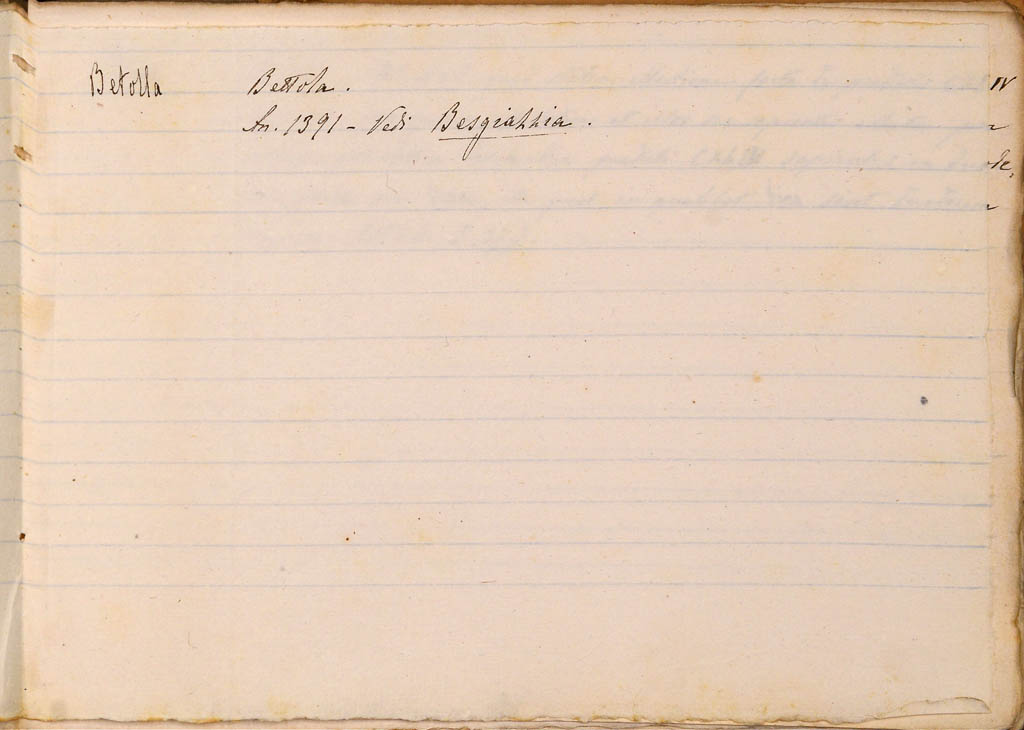 Betolla Bettola.
An. 1391 - Vedi Besgiazzia.